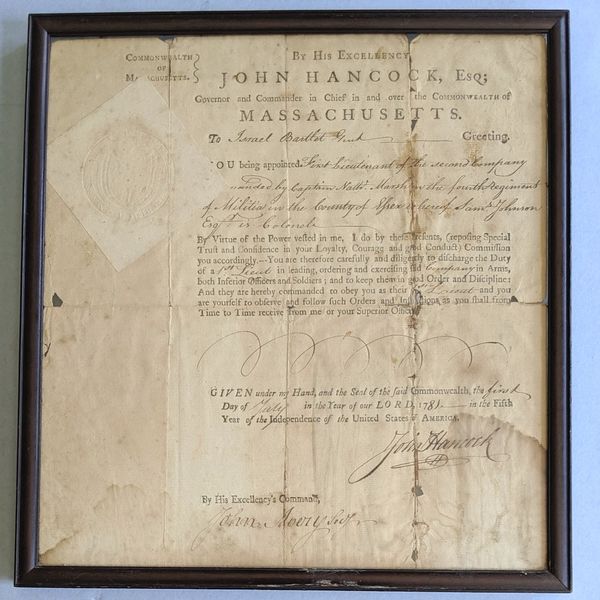 COMMONWEALTH
OF
MASSACHUSETTS.
BY HIS EXCELLENCY
JOHN HANCOCK, ESQ;
Governor and Commander in Chief in and over the COMMONWEALTH of
MASSACHUSETTS.
To Israel Bartlet Gent Greeting.
YOU being appointed First Lieutenant of the second Company
manded by Captain Nathl. Marsh in the fourth Regiment
of Militia in the County of Essex whereof Saml. Johnson
Esqr. is Colonel
By Virtue of the Power vested in me, I do by these Presents, (reposing Special
Trust and Confidence in your Loyalty, Courage and good Conduct) Commission
you accordingly.—You are therefore carefully and diligently to discharge the Duty
of a 1st Lieut in leading, ordering and exercising said Company in Arms,
both Inferior Officers and Soldiers; and to keep them in good Order and Discipline:
And they are hereby commanded to obey you as their 1st Lieut and you
are yourself to observe and follow such Orders and Instructions as you shall from
Time to Time receive from me or your Superior Officers.
GIVEN under my Hand, and the Seal of the said Commonwealth, the first
Day of July in the Year of our LORD, 1781 in the Fifth
Year of the Independence of the United States of AMERICA.
John Hancock
By His Excellency's Command,
John Avery Secy